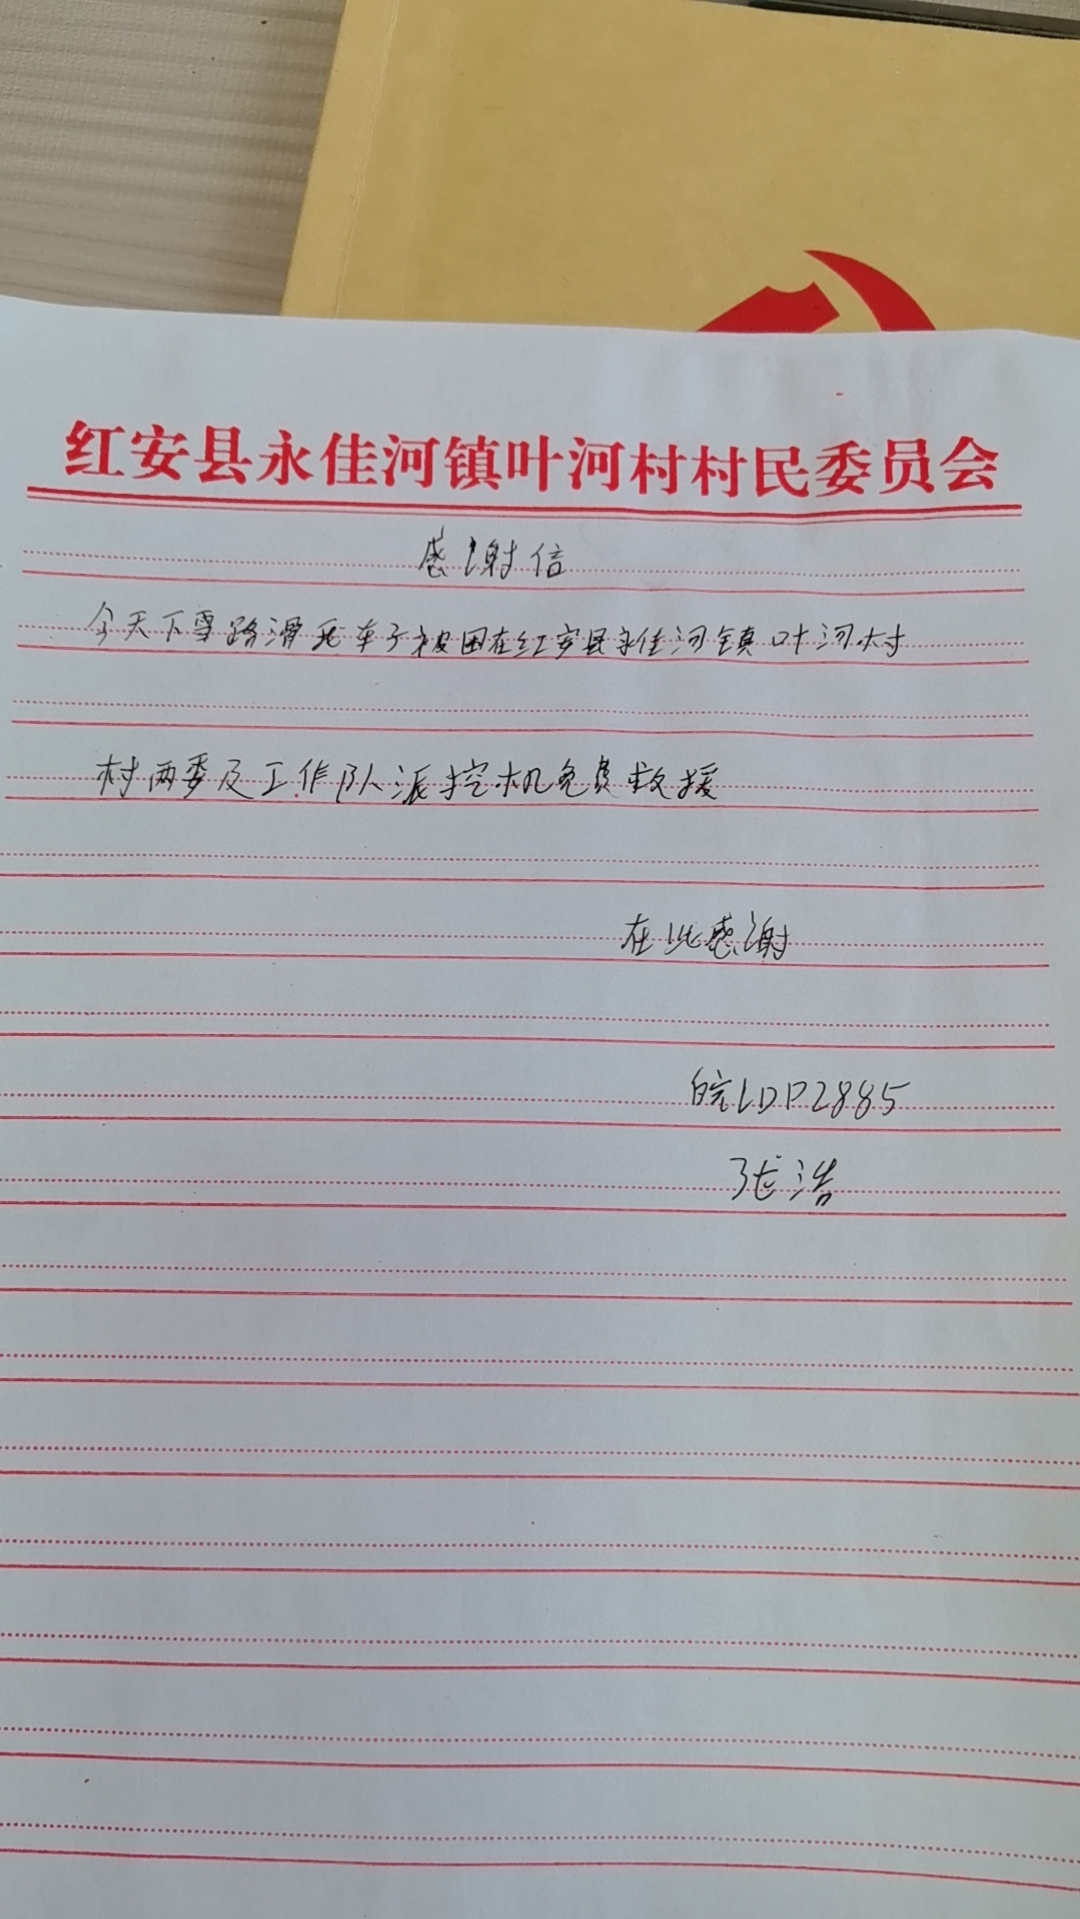 红安县永佳河镇叶河村村民委员会
感谢信
今天下雪路滑我车子被困在红安县永佳河镇叶河村
村两委及工作队派挖机免费救援
在此感谢
皖LDP2885
张浩